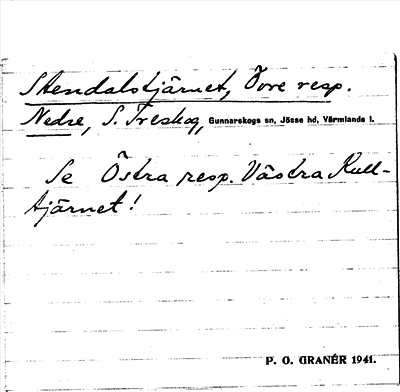 Stendalstjärnet, Övre resp.
Nedre, S. Treskog, Gunnarskogs sn, Jösse hd, Värmlands l.
Se Östra resp. Västra Kull-
tjärnet!
P. O. GRANÉR 1941.